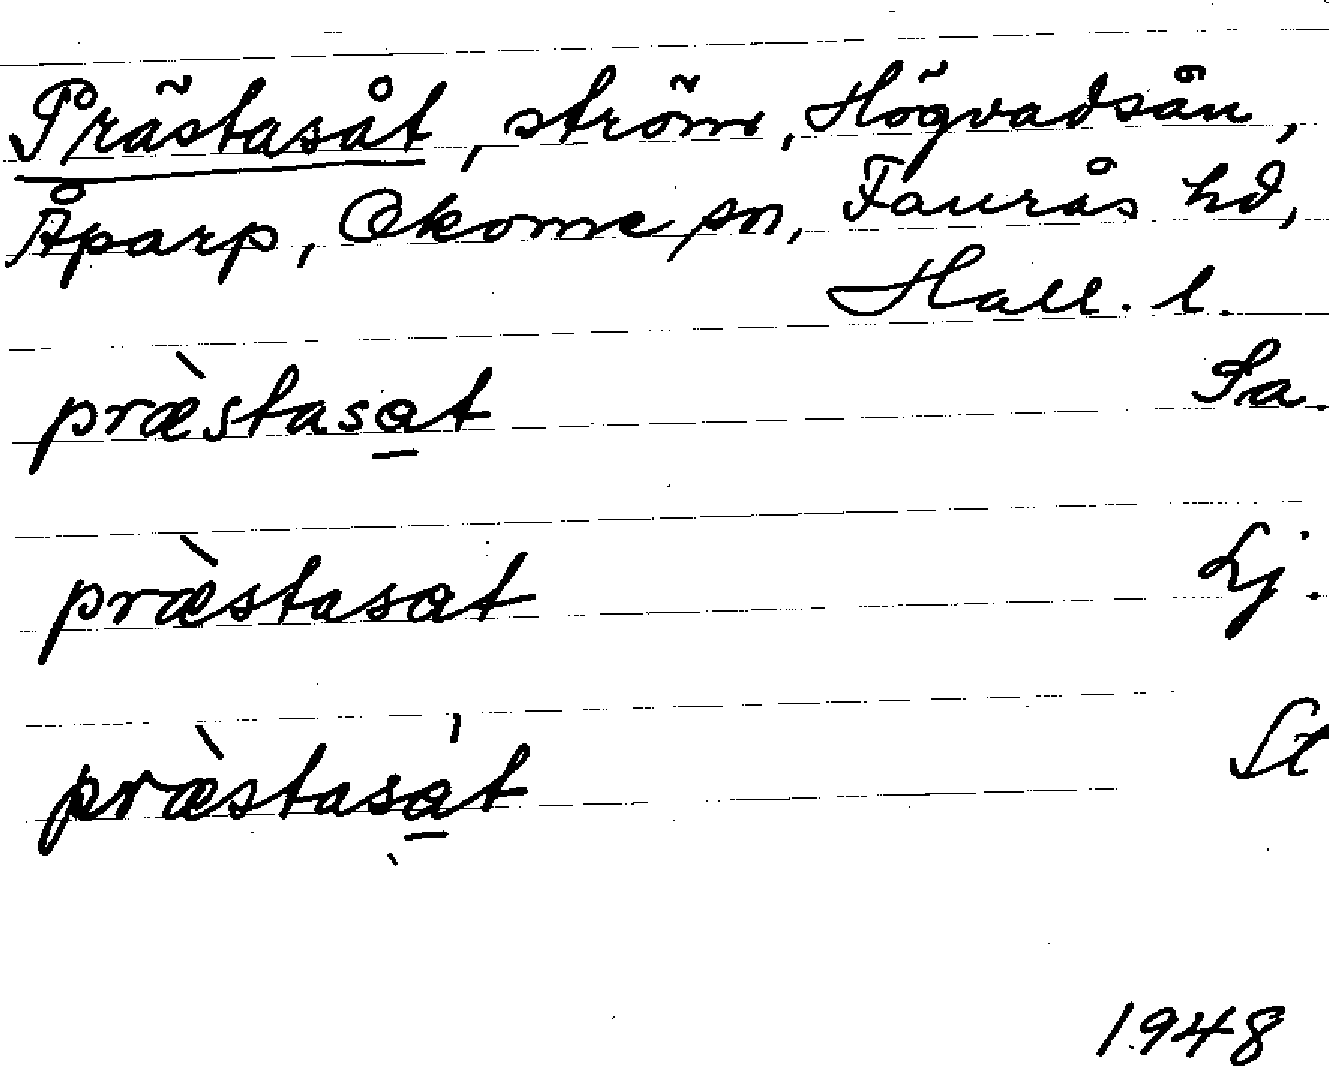 Prästasåt, ström, Högvadsån,
Åparp, Okome sn, Faurås hd,
Hall. l.
præ̀stasa̲t Sa.
præ̀stasat Lj.
præ̀stasa̲̍t St
1948